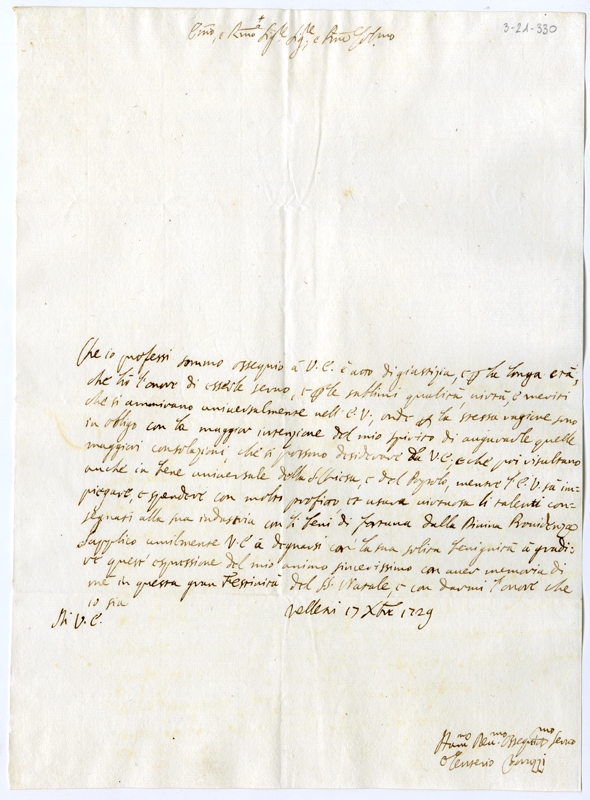 3-21-330
Che io professi sommo ossequio à V.E. è atto di giustizia, e p la longa età,
che hò l'onore di esserle servo, e p le sublimi qualità, virtù, e meriti
che si ammirano universalmente nell'E.V.; onde p la stessa ragione sono
in obligo con la maggior intenzione del mio spirito di augurarle quelle
maggiori consolazioni, che si possono desiderare da V.E., e che poi risultano
anche in bene universale della Chiesa, e del Popolo, mentre l'E.V. sà im-
piegare, e spendere con molto profitto et usura virtuosa li talenti con-
segnati alla sua industria con li beni di fortuna dalla Divina Providenza
Supplico umilmente V.E. à degnarsi con la sua solita benignità à gradi-
re quest'espressione del mio animo sincerissimo con aver memoria di
me in questa gran Festività del SS. Natale, e con darmi l'onore che
io sia
Di V.E.
Velletri 17 Xbre 1729
Servo